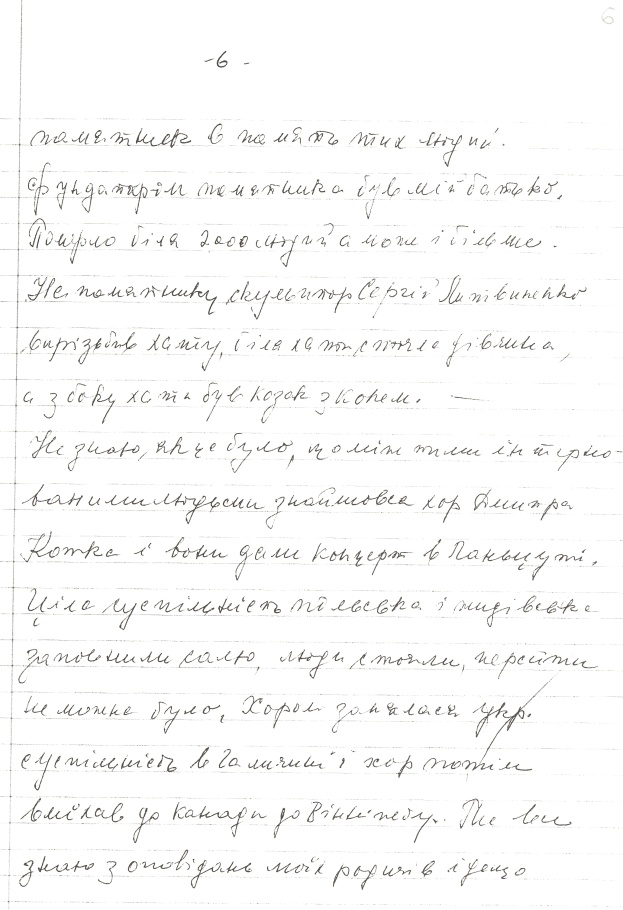 6
-6-
памятник в память тих людий.
Фундатором памятника був мій батько.
Померло біля 2000 людий а може і більше.
На памятнику скульптор Сергій Литвиненко
вирізьбив хату, біля хати стояла дівчина,
а з боку хати був козак з конем. —
Не знаю, як це було, що між тими інтерно-
ваними людьми знайшовся хор Дмитра
Котка і вони дали концерт в Ланьцуті.
Ціла суспільність польська і жидівська
заповнили салю, люди стояли, перейти
не можна було. Хором занялася укр.
суспільність в Галичині і хор потім
виїхав до Канади до Вінніпегу. Це все
знаю з оповідань моїх родичів і дещо